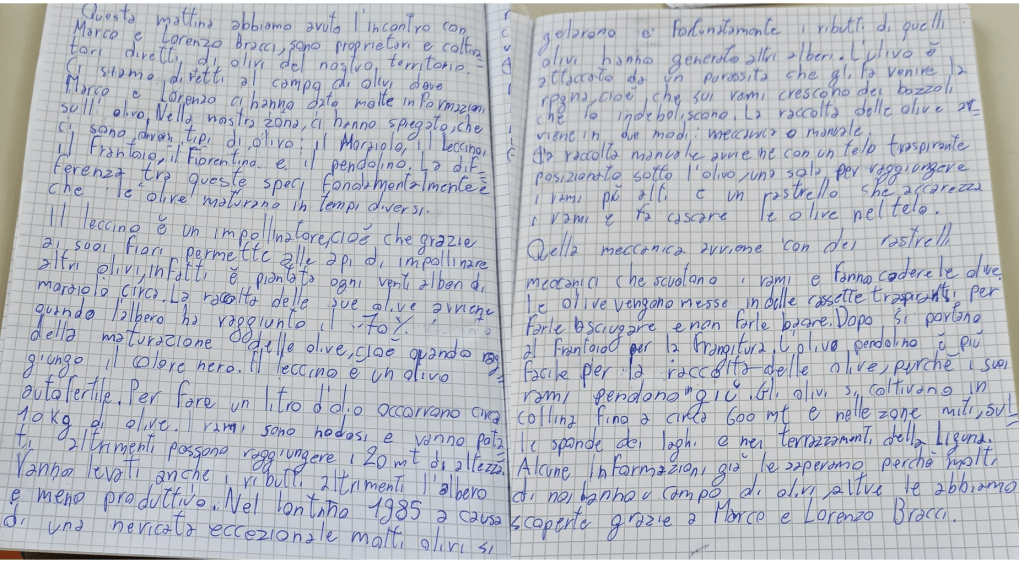 Questa mattina abbiamo avuto l'incontro con
Marco e Lorenzo Bracci, sono proprietari e coltiva
tori diretti, di olivi del nostro territorio.
Ci siamo diretti al campo di olivi dove
Marco e Lorenzo ci hanno dato molte informazioni
sull'olivo. Nella nostra zona, ci hanno spiegato, che
ci sono diversi tipi di olivo: il Moraiolo, il Leccino,
il Frantoio, il Fiorentino e il pendolino. La dif
ferenza tra queste speci fondamentalmente è
che le olive maturano in tempi diversi.
Il leccino è un impollinatore, cioè che grazie
ai suoi fiori permette alle api di impollinare
altri olivi, infatti è piantato ogni venti alberi di
moraiolo circa. La racolta delle sue olive avviene
quando l'albero ha raggiunto il 70%
della maturazione delle olive, cioè quando rag
giungo il colore nero. Il leccino è un olivo
autofertile. Per fare un litro d'olio occorrono circa
10 kg di olive. I rami sono nodosi e vanno pota
ti altrimenti possono raggiungere i 20 mt di altezza.
Vanno levati anche i ributti altrimenti l'albero
è meno produttivo. Nel lontano 1985 a causa
di una nevicata eccezionale molti olivi si
gelarono e fortunatamente i ributti di quelli
olivi hanno generato altri alberi. L'ulivo è
attaccato da un parassita che gli fa venire la
rogna, cioè, che sui rami crescono dei bozzoli
che lo indeboliscono. La raccolta delle olive av
viene in due modi: meccanico o manuale.
La raccolta manuale avviene con un telo traspirante
posizionato sotto l'olivo, una scala, per raggiungere
i rami più alti e un rastrello che accarezza
i rami e fa cascare le olive nel telo.
Quella meccanica avviene con dei rastrelli
meccanici che scuotono i rami e fanno cadere le olive.
Le olive vengono messe in delle cassette traspiranti, per
farle asciugare e non farle bacare. Dopo si portano
al Frantoio per la frangitura. L'olivo pendolino è più
facile per la raccolta delle olive, perchè i suoi
rami pendono giù. Gli olivi si coltivano in
collina fino a circa 600 mt e nelle zone miti, sul
le sponde dei laghi e nei terrazzamenti della Liguria.
Alcune informazioni già le sapevamo perchè molti
di noi hanno campo di olivi, altre le abbiamo
scoperte grazie a Marco e Lorenzo Bracci.